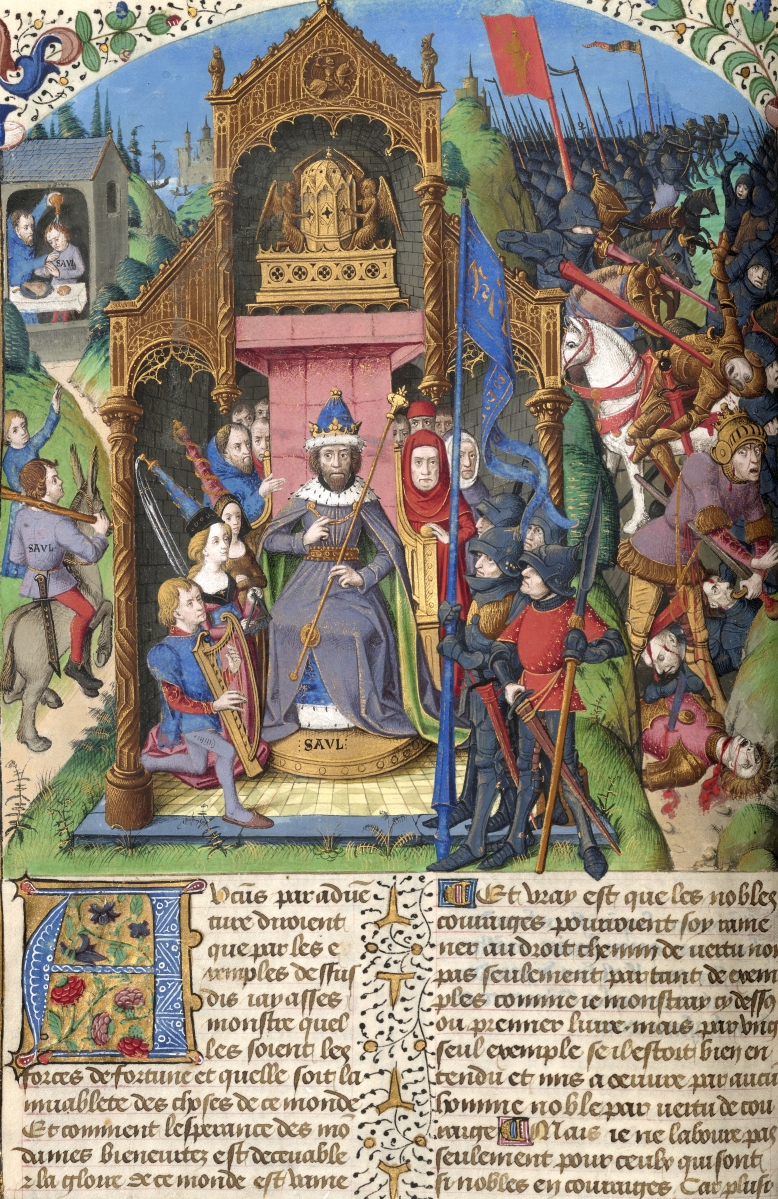 SAVL
SAVL
:SAVL:
Aucūs par adue
ture diroient
que par les e
xemples dessus
dis iay asses
monstre quel
les soient les
forces de fortune et quelle soit la
muablete des choses de ce monde
Et comment lesperance des mō
daines bieneurtez est deceuable
& la gloire de ce monde est vaine
Et vray est que les nobles
couraiges pourroient soy rame
ner au droit chemin de vertu non
pas seulement par tant de exem
ples comme ie monstray cy desso
ou premier liure. mais par vng
seul exemple se il estoit bien en
tendu et mis a oeuure par aucū
homme noble par vertu de cou
raige Mais ie ne laboure pas
seulement pour ceulx qui sont
si nobles en couraiges. Car plusi